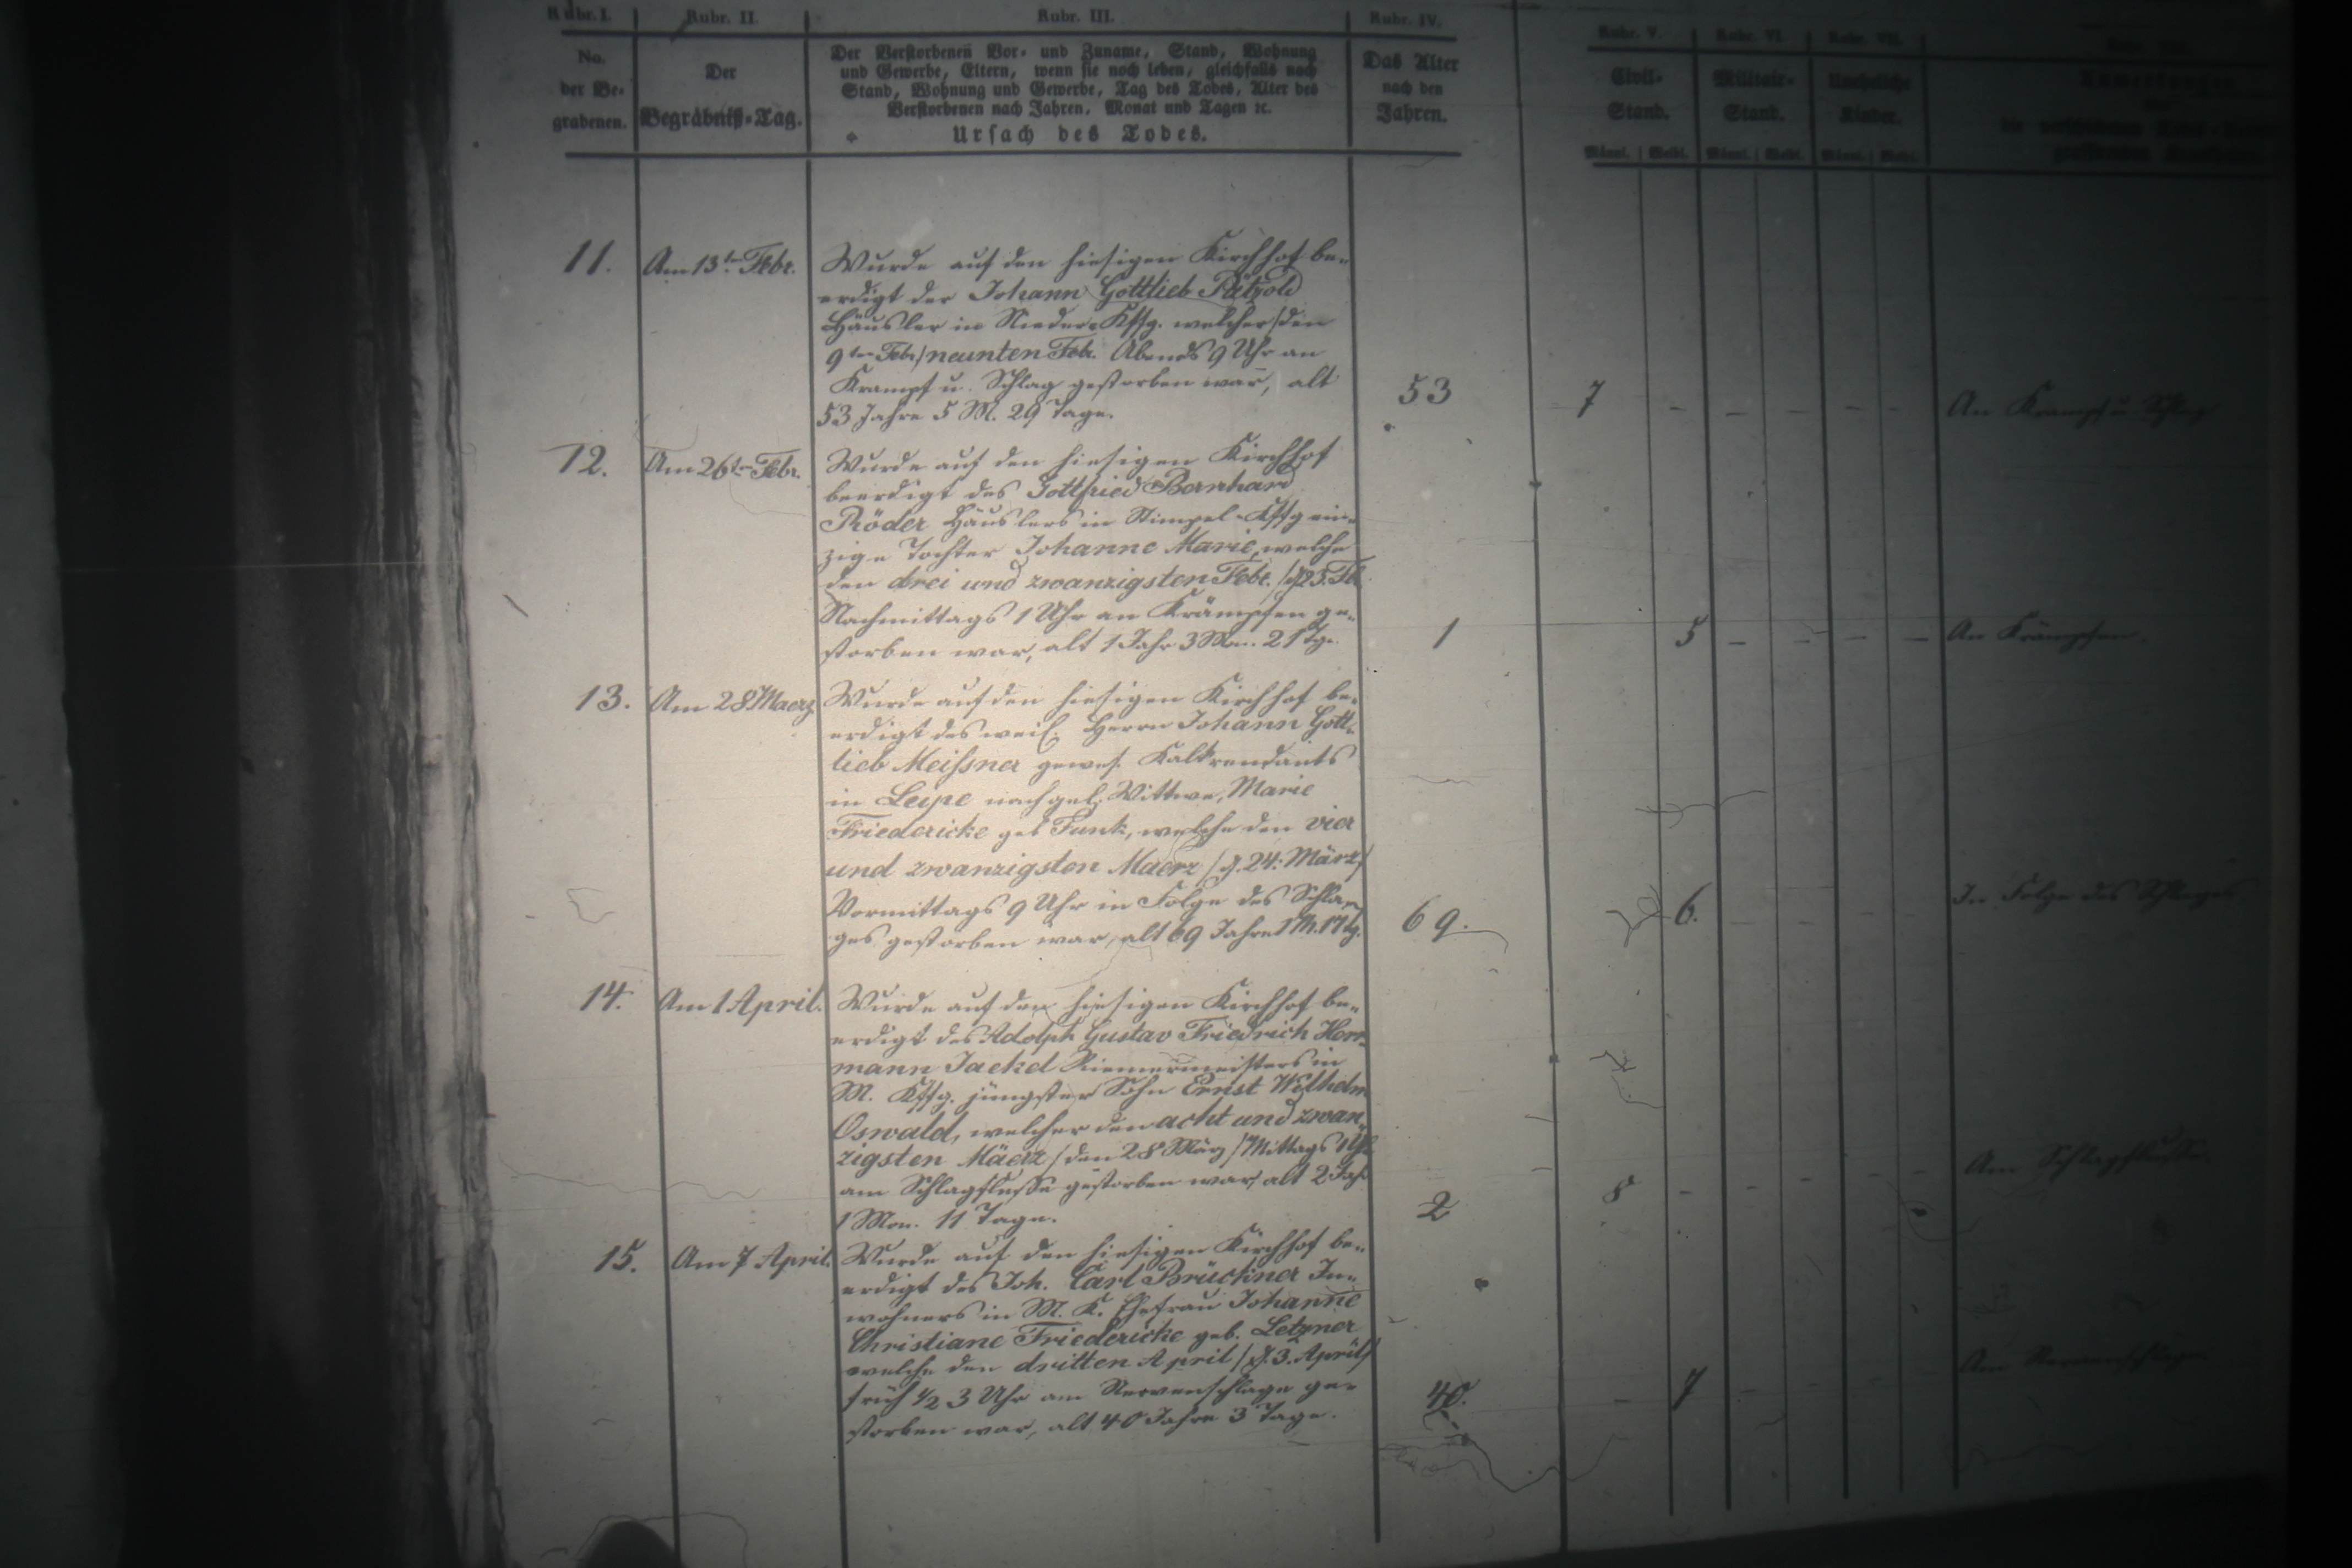 Rubr. I.
No.
der Be-
grabenen.
Rubr. II.
Der
Begräbniß-Tag.
Rubr. III.
Der Verstorbenen Vor- und Zuname, Stand, Wohnung
und Gewerbe, Eltern, wenn sie noch leben, gleichfalls nach
Stand, Wohnung und Gewerbe, Tag des Todes, Alter des
Verstorbenen nach Jahren, Monat und Tagen ꝛc.
Ursach des Todes.
Rubr. IV.
Das Alter
nach den
Jahren.
Rubr. V.
Civil-
Stand.
Männl. | Weibl.
Rubr. VI.
Militair-
Stand.
Männl. | Weibl.
Rubr. VII.
Uneheliche
Kinder.
Männl. | Weibl.
Anmerkungen
11. Am 13ten Febr.
Wurde auf den hiesigen Kirchhof be-
erdigt der Johann Gottlieb Pätzold
Häusler in Nieder-Kffg. welcher /den
9ten Feb./ neunten Feb. Abends 9 Uhr an
Krampf u. Schlag gestorben war, alt
53 Jahre 5 M. 29 Tage.
53
7 - - - - -
An Krampf u. Schlag
12. Am 26ten Febr.
Wurde auf den hiesigen Kirchhof
beerdigt des Gottfried Bernhard
Röder Häuslers in Stimpel-Kffg ein-
zige Tochter Johanne Marie, welche
den drei und zwanzigsten Febr.
Nachmittags 1 Uhr an Krämpfen ge-
storben war, alt 1 Jahr 3 Mon. 21 Tge.
1
5 - - - -
An Krämpfen.
13. Am 28 Maerz
Wurde auf den hiesigen Kirchhof be-
erdigt des weil. Herrn Johann Gott-
lieb Meißner gewes. Kalkrendants
in Leipe nachgel. Wittwe, Marie
Friedericke geb Funk, welche den vier
und zwanzigsten Maerz /d. 24. März/
Vormittags 9 Uhr in Folge des Schla-
ges gestorben war, alt 69 Jahre 1 M. 17 tg.
69.
6. - - - -
In Folge des Schlages
14. Am 1 April.
Wurde auf den hiesigen Kirchhof be-
erdigt des Adolph Gustav Friedrich Herr-
mann Jaekel Riemermeisters in
M. Kffg. jüngster Sohn Ernst Wilhelm
Oswald, welcher den acht und zwan-
zigsten Mäerz /den 28 März/ Mittags 1 Uhr
am Schlagflusse gestorben war, alt 2 Jahr
1 Mon. 11 Tage.
2
8 - - - - -
Am Schlagflusse
15. Am 7 April.
Wurde auf den hiesigen Kirchhof be-
erdigt des Joh. Carl Brückner In-
wohners in M. K. Ehefrau Johanne
Christiane Friedericke geb. Letzner
welche den dritten April /d. 3. April/
früh ½ 3 Uhr am Nervenschlage ge-
storben war, alt 40 Jahre 3 Tage.
40.
- 7 - - - -
Am Nervenschlage.